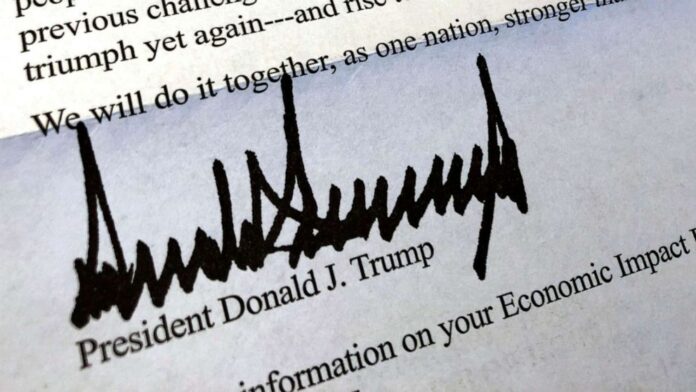 previous
triumph yet again---and rise
We will do it together, as one nation, stronger
President Donald J. Trump
information on your Economic Impact